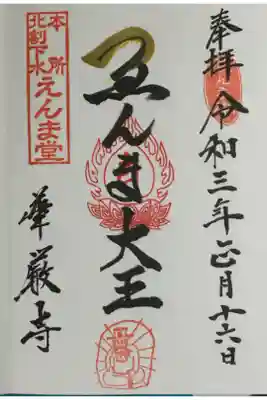 奉拝 令和三年正月十六日
ゑんま大王
本所
北割下水
えんま堂
華厳寺